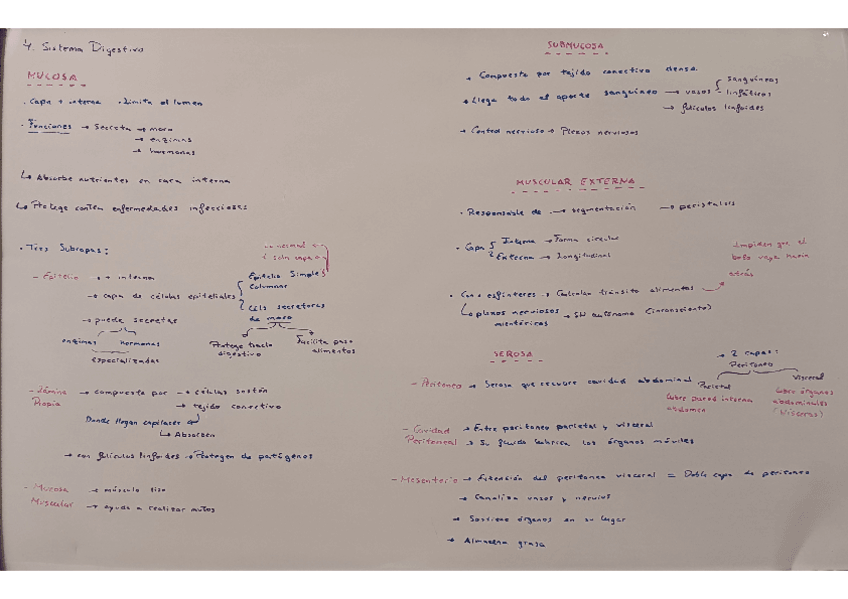 4. Sistema Digestivo
MUCOSA
· Capa + interna · Limita al lumen
· Funciones → Secreta → moco
→ enzimas
→ hormonas
↳ Absorbe nutrientes en cara interna
↳ Protege contra enfermedades infecciosas
· Tres Subcapas:
lo normal es
1 sola capa
- Epitelio → + interna
→ capa de células epiteliales
Epitelio Simple
Columnar
Céls secretoras
de moco
→ puede secretar
enzimas hormonas
especializadas
Protege tracto
digestivo
Facilita paso
alimentos
- Lámina
Propia
→ compuesta por → células sostén
→ tejido conectivo
Donde llegan capilares
↳ Absorben
→ con folículos linfoides → Protegen de patógenos
- Mucosa
Muscular
→ músculo liso
→ ayuda a realizar mvtos
SUBMUCOSA
· Compuesta por tejido conectivo denso.
· Llega todo el aporte sanguíneo → vasos
sanguíneos
linfáticos
→ folículos linfoides
→ Control nervioso → Plexos nerviosos
MUSCULAR EXTERNA
· Responsable de → segmentación → peristalsis
· Capa
Interna → Forma circular
Externa → Longitudinal
· Con esfínteres → Controlan tránsito alimentos
Impiden que el
bolo vaya hacia
atrás
↳ plexos nerviosos
mientéricos
→ SN autónomo (inconsciente)
SEROSA
- Peritoneo → Serosa que recubre cavidad abdominal
→ 2 capas:
Peritoneo
Parietal
Cubre pared interna
abdomen
Visceral
Cubre órganos
abdominales
(Vísceras)
- Cavidad
Peritoneal
→ Entre peritoneo parietal y visceral
→ Su fluido lubrica los órganos móviles
- Mesenterio → Extensión del peritoneo visceral = Doble capa de peritoneo
→ Canaliza vasos y nervios
→ Sostiene órganos en su lugar
→ Almacena grasa